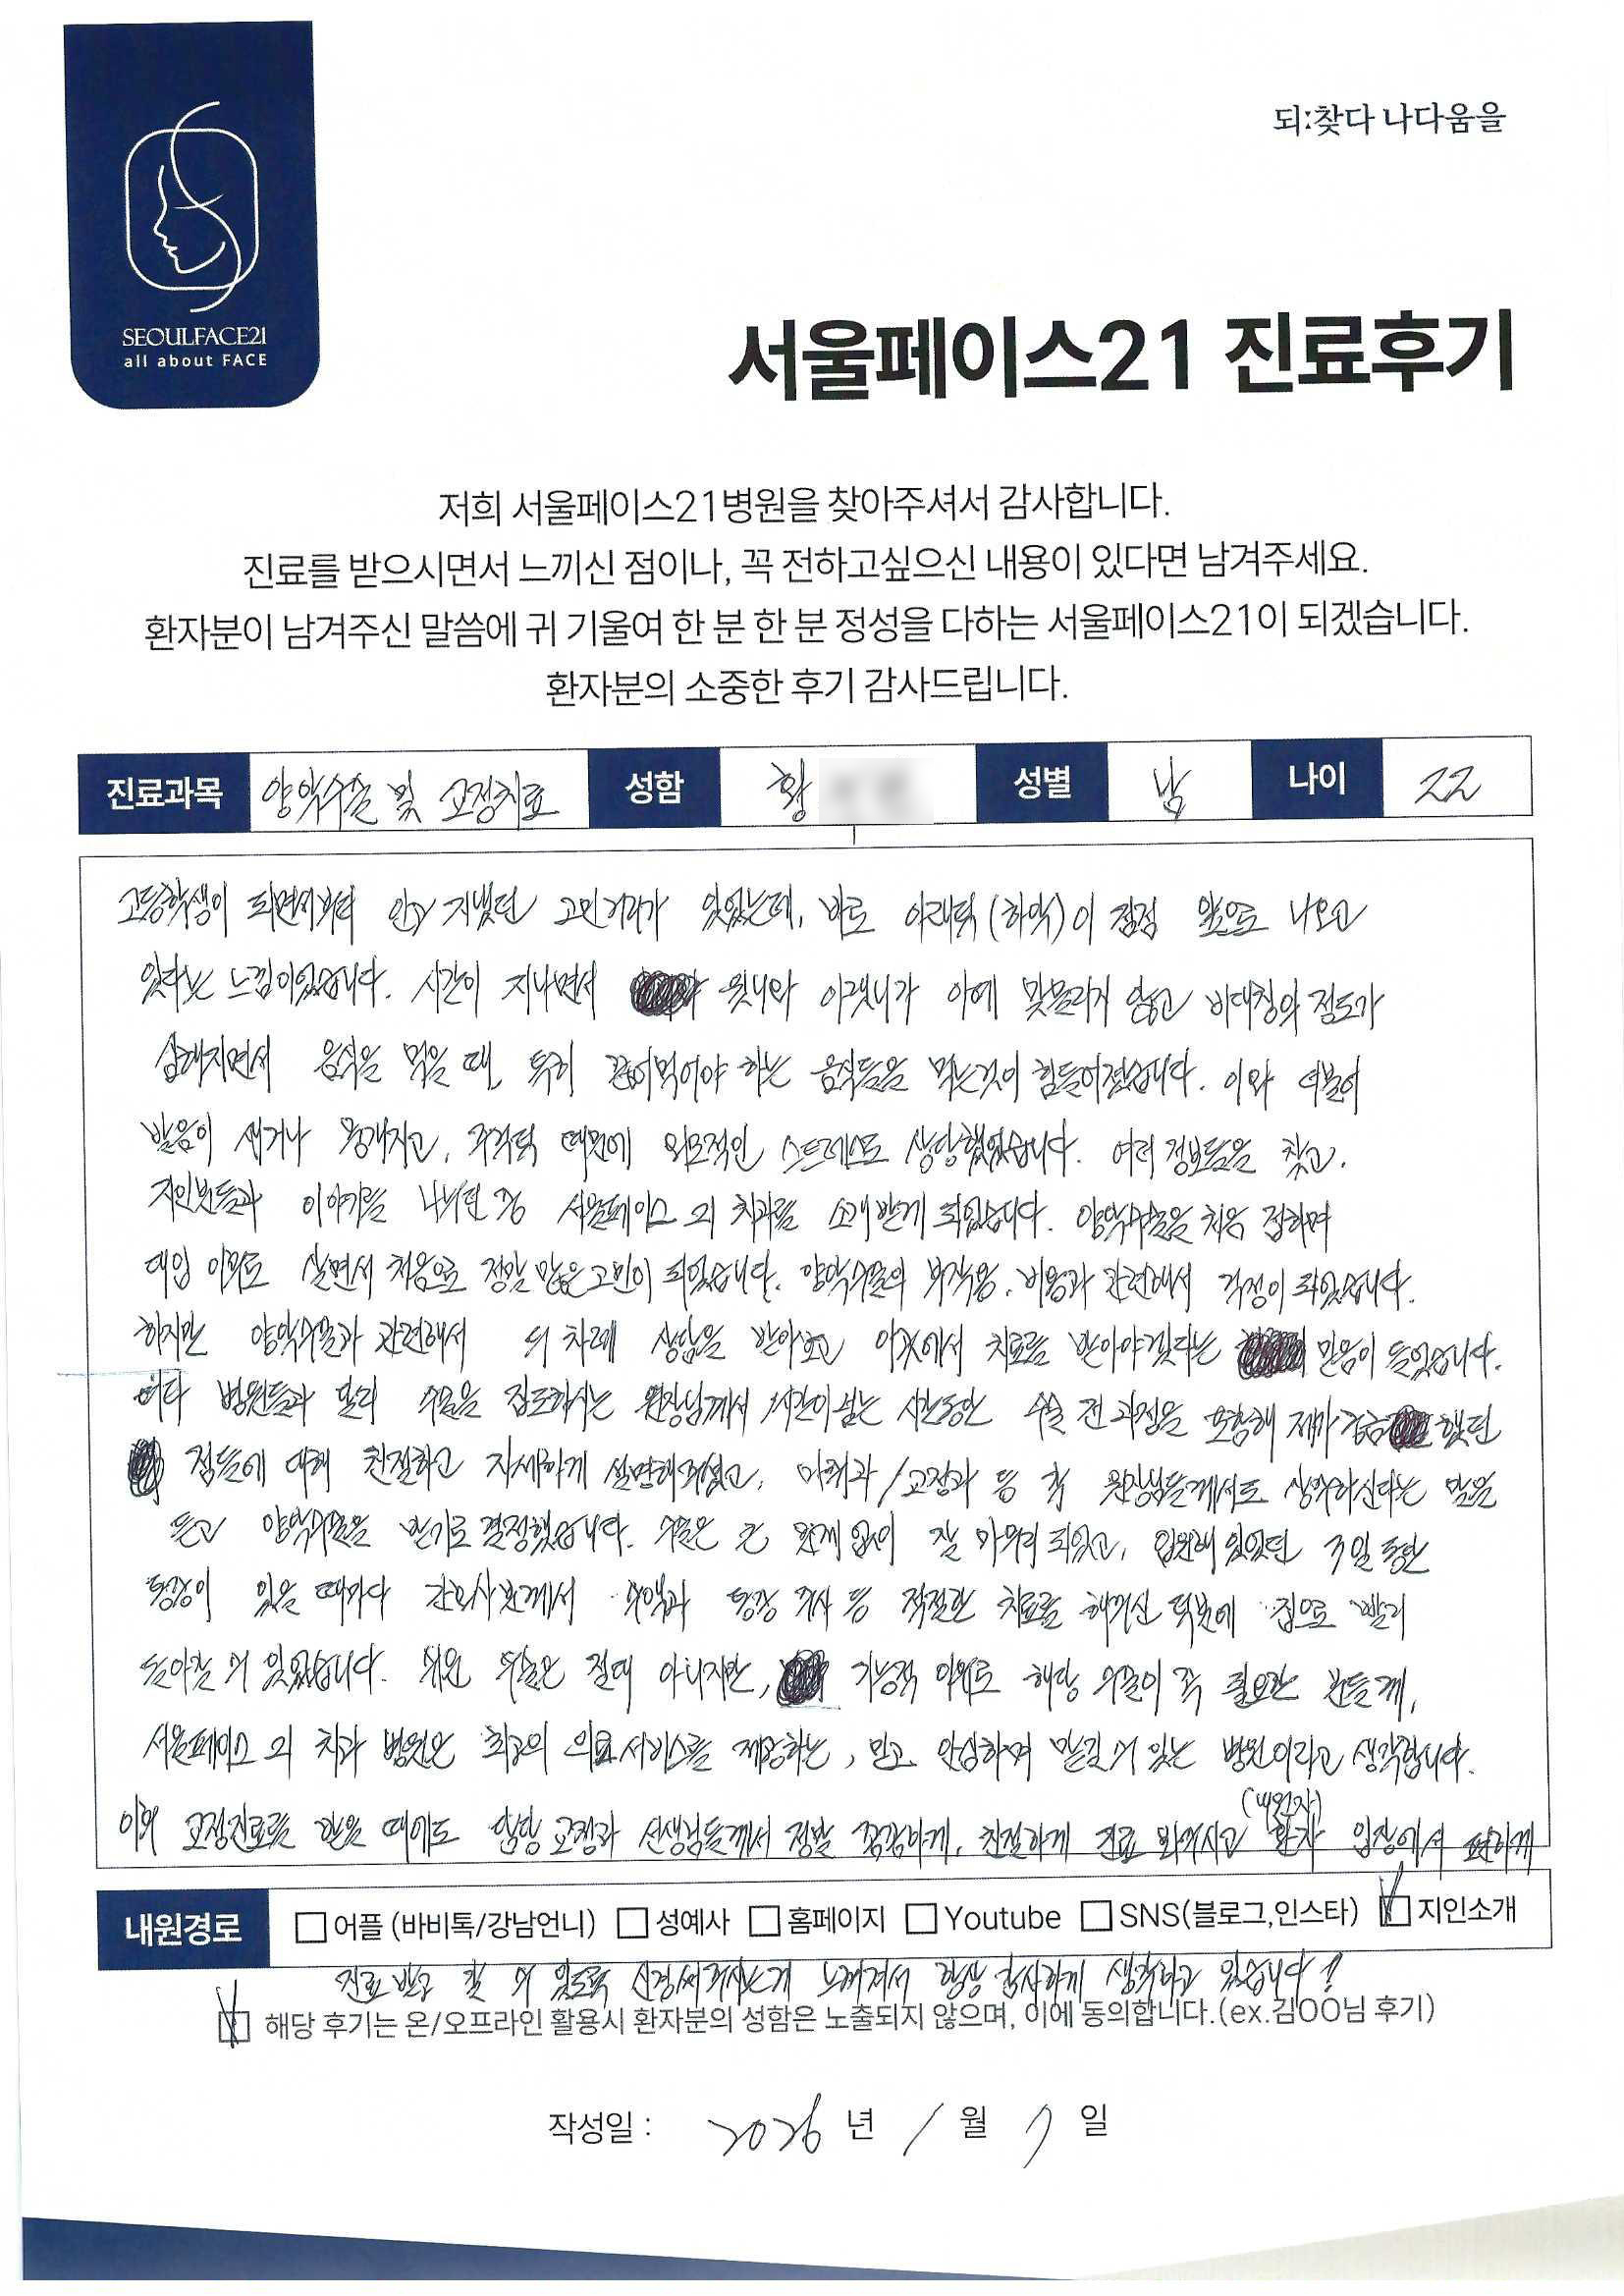 되:찾다 나다움을
SEOULFACE21
all about FACE
서울페이스21 진료후기
저희 서울페이스21병원을 찾아주셔서 감사합니다.
진료를 받으시면서 느끼신 점이나, 꼭 전하고싶으신 내용이 있다면 남겨주세요.
환자분이 남겨주신 말씀에 귀 기울여 한 분 한 분 정성을 다하는 서울페이스21이 되겠습니다.
환자분의 소중한 후기 감사드립니다.
진료과목 양악수술 및 교정치료 성함 황 성별 남 나이 22
고등학생이 되면서부터 안고 지냈던 고민거리가 있었는데, 바로 아래턱(하악)이 점점 앞으로 나오고
있다는 느낌이었습니다. 시간이 지나면서 윗니와 아랫니가 아예 맞물리지 않고 비대칭의 정도가
심해지면서 음식을 먹을 때, 특히 끊어먹어야 하는 음식들을 먹는것이 힘들어졌습니다. 이와 더불어
발음이 새거나 뭉개지고, 주걱턱 때문에 외모적인 스트레스도 상당했었습니다. 여러 정보들을 찾고,
지인분들과 이야기를 나누던 중 서울페이스21 치과를 소개받게 되었습니다. 양악수술을 처음 접하며
대입 이외로 살면서 처음으로 정말 많은 고민이 되었습니다. 양악수술의 부작용, 비용과 관련해서 걱정이 되었습니다.
하지만 양악수술과 관련해서 두 차례 상담을 받아보고 이곳에서 치료를 받아야겠다는 믿음이 들었습니다.
여타 병원들과 달리 수술을 집도하시는 원장님께서 1시간이 넘는 시간동안 수술 전 과정을 포함해 제가 궁금했던
점들에 대해 친절하고 자세하게 설명해주셨고, 마취과/교정과 등 각 원장님들께서도 상의하신다는 말을
듣고 양악수술을 받기로 결정했습니다. 수술은 큰 문제 없이 잘 마무리 되었고, 입원해 있었던 3일 동안
통증이 있을 때마다 간호사분께서 수액과 통증 주사 등 적절한 치료를 해주신 덕분에 집으로 빨리
돌아갈 수 있었습니다. 쉬운 수술은 절대 아니지만, 기능적 이유로 해당 수술이 꼭 필요한 분들께,
서울페이스21 치과 병원은 최고의 의료서비스를 제공하는, 믿고 안심하며 맡길 수 있는 병원이라고 생각합니다.
(내원자)
이외 교정진료를 받을 때에도 담당 교정과 선생님들께서 정말 꼼꼼하게, 친절하게 진료 봐주시고 환자 입장에서 편하게
내원경로 어플 (바비톡/강남언니) 성예사 홈페이지 Youtube SNS(블로그,인스타) 지인소개
진료 받고 갈 수 있도록 신경써주시는게 느껴져서 항상 감사하게 생각하고 있습니다!
해당 후기는 온/오프라인 활용시 환자분의 성함은 노출되지 않으며, 이에 동의합니다.(ex.김OO님 후기)
작성일 : 2026 년 1 월 7 일